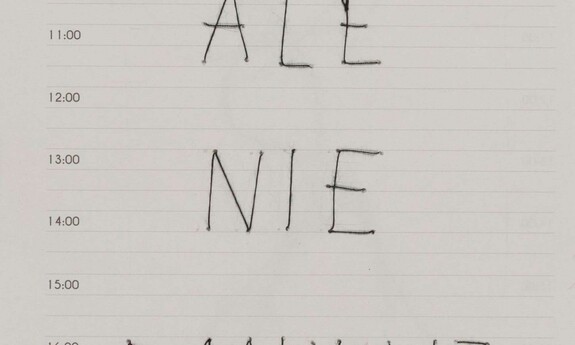 11:00 ALE
12:00
13:00 NIE
14:00
15:00
16:00